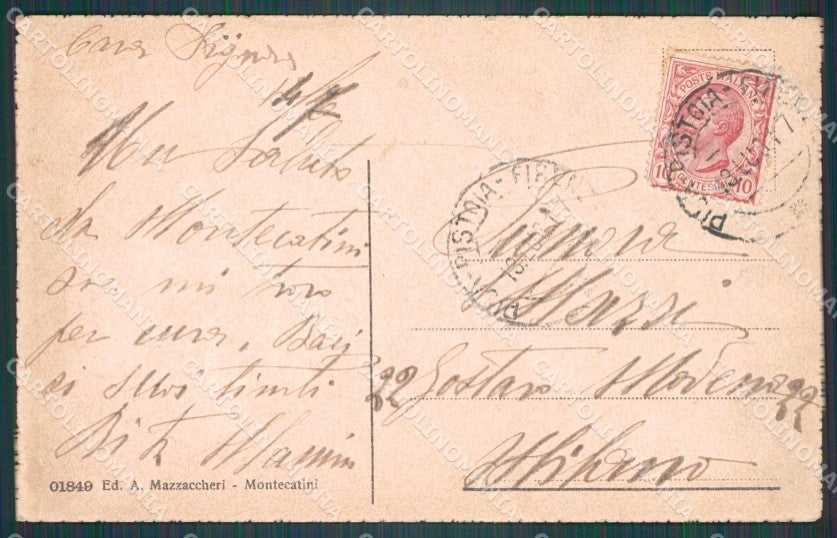 Cara Signora
14/7
Un Saluto
da Montecatini
ove mi trovo
per cura, Baci
ai suoi
Rita
01849 Ed. A. Mazzaccheri - Montecatini
POSTE ITALIANE
10 CENTESIMI 10
PISTOIA - FIRENZE
PISTOIA - FIRENZE
Signora
22 Modena 22
Milano